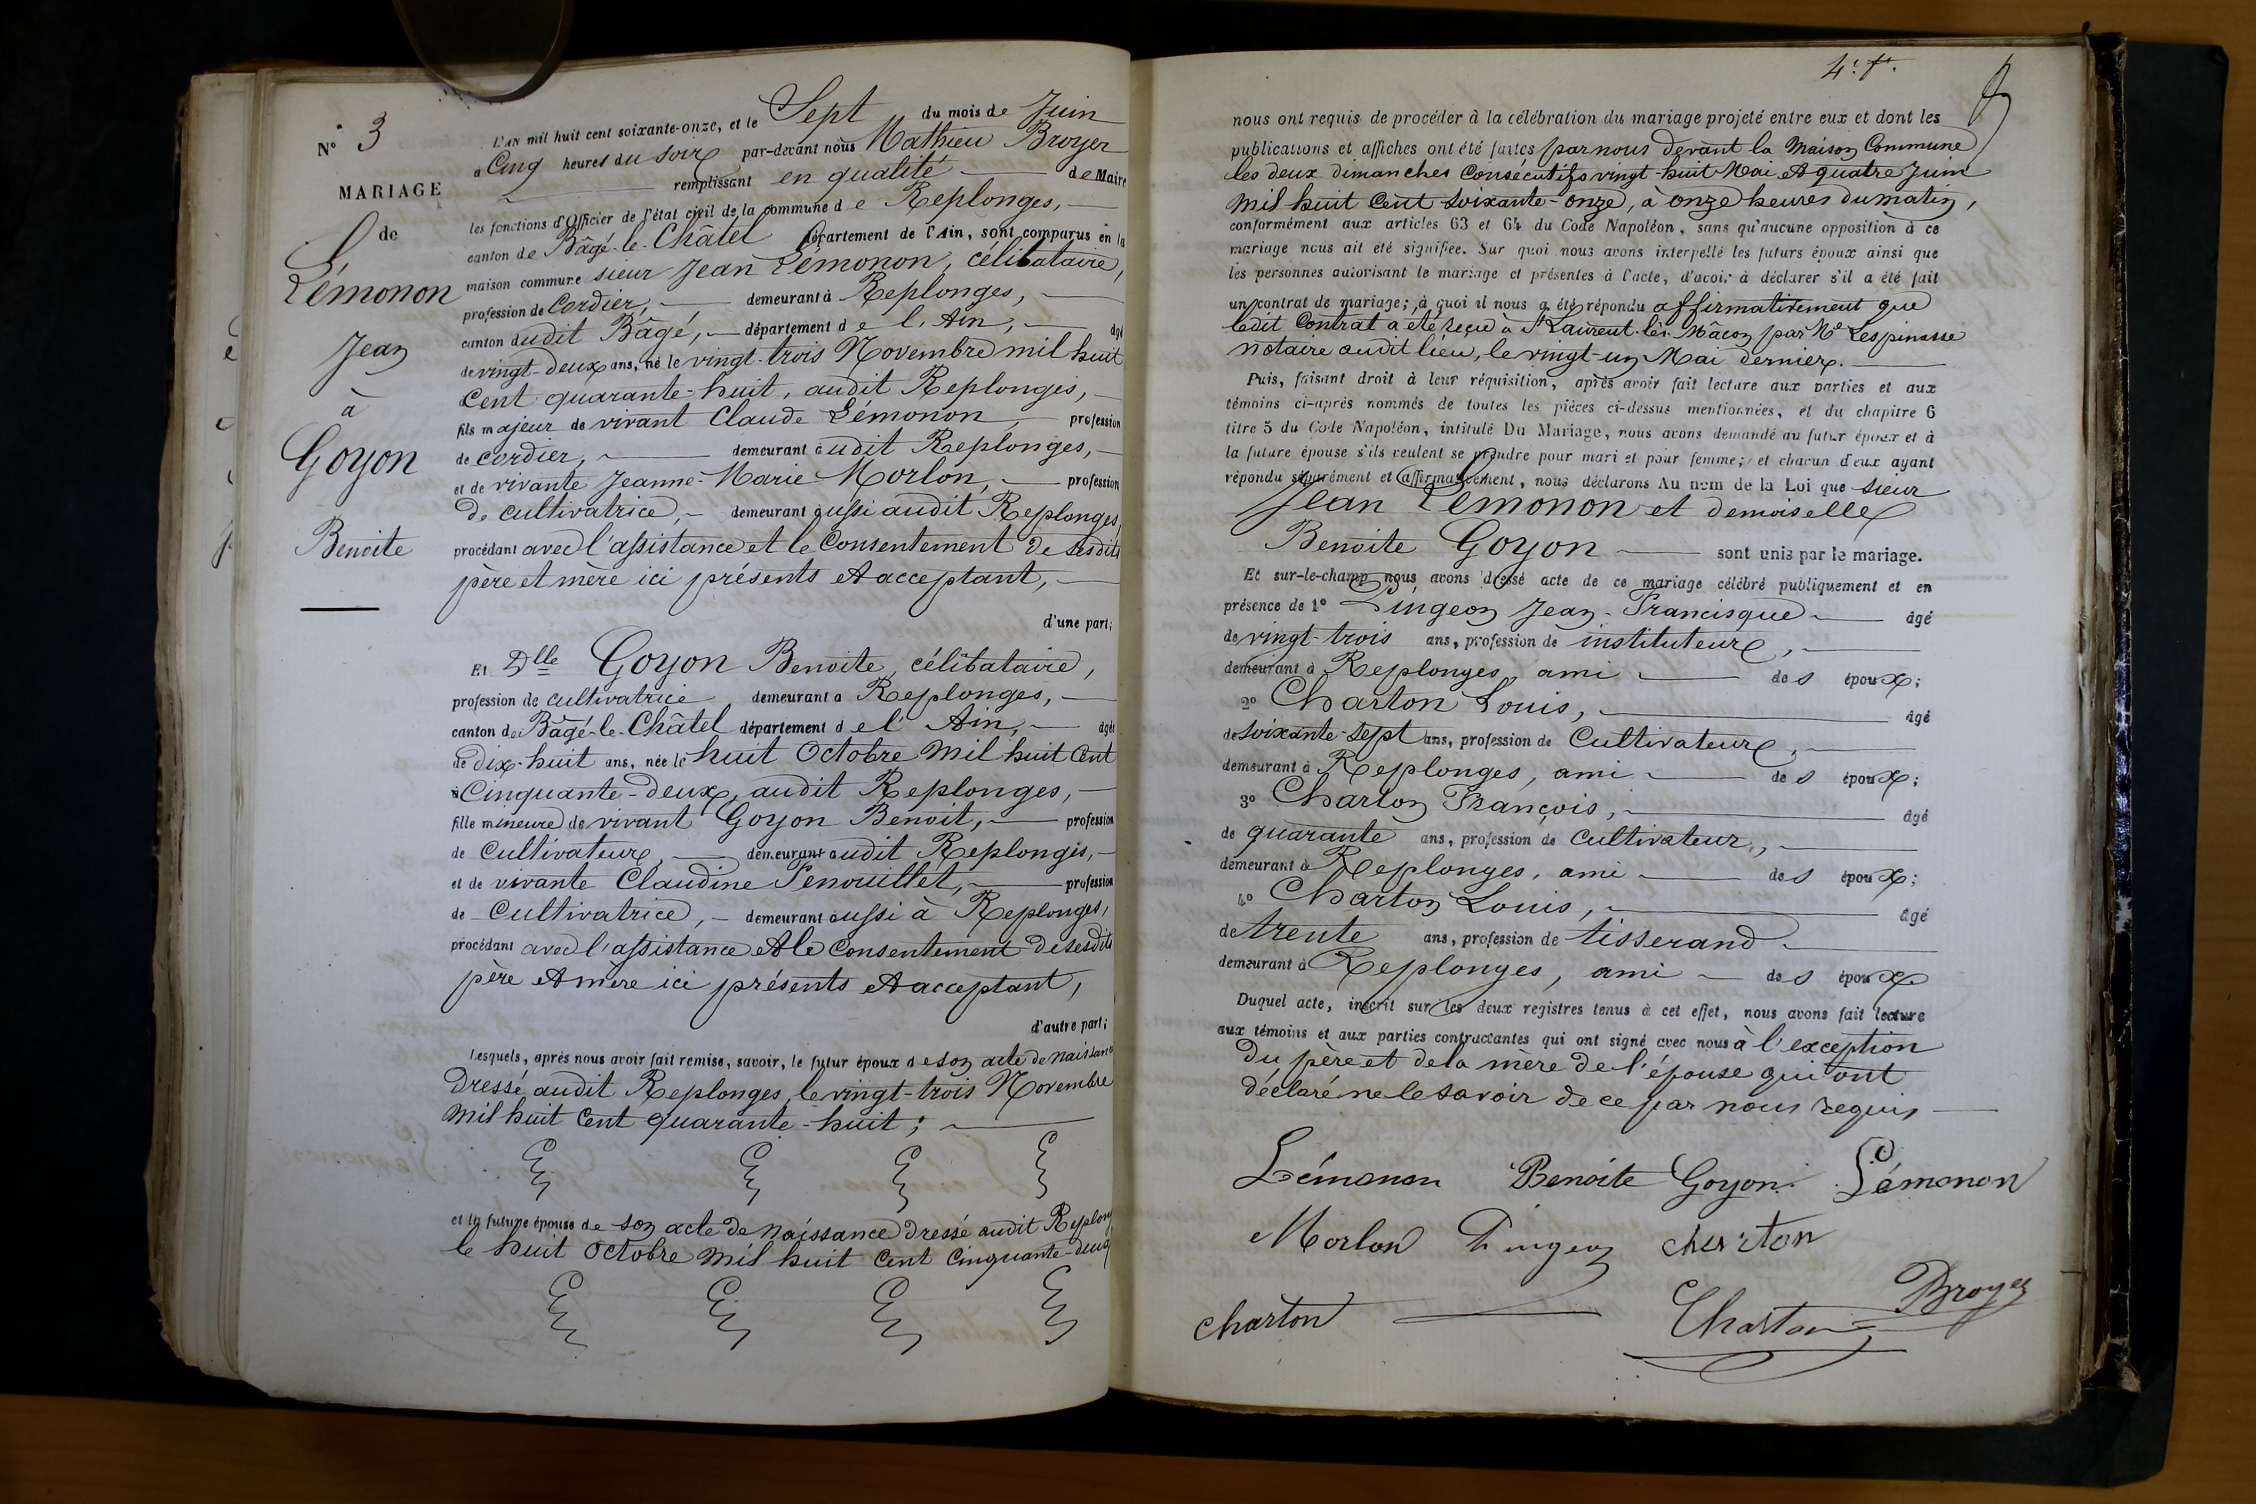 N° 3
MARIAGE
de
Lémonon
Jean
à
Goyon
Benoite
L'AN mil huit cent soixante-onze, et le Sept du mois de Juin
à Cinq heures du soir par-devant nous Mathieu Broyer
remplissant en qualité de Maire
les fonctions d'Officier de l'état civil de la commune de Replonges,
canton de Bâgé-le-Châtel département de l'Ain, sont comparus en la
maison commune sieur Jean Lémonon, célibataire,
profession de Cordier, demeurant à Replonges,
canton dudit Bâgé, département de l'Ain, âgé
de vingt-deux ans, né le vingt-trois Novembre mil huit
Cent quarante-huit, audit Replonges,
fils majeur de vivant Claude Lémonon profession
de cordier, demeurant audit Replonges,
et de vivante Jeanne-Marie Morlon, profession
de cultivatrice, demeurant aussi audit Replonges,
procédant avec l'assistance et le Consentement de sesdits
père et mère ici présents et acceptant,
d'une part;
Et Dlle Goyon Benoite, célibataire,
profession de cultivatrice demeurant à Replonges,
canton de Bâgé-le-Châtel département de l'Ain, âgée
de dix-huit ans, née le huit Octobre mil huit Cent
Cinquante-deux, audit Replonges,
fille mineure de vivant Goyon Benoit, profession
de Cultivateur, demeurant audit Replonges,
et de vivante Claudine Penouillet, profession
de Cultivatrice, demeurant aussi à Replonges,
procédant avec l'assistance et le Consentement de sesdits
père et mère ici présents et acceptant,
d'autre part;
Lesquels, après nous avoir fait remise, savoir, le futur époux de son acte de naissance
Dressé audit Replonges, le vingt-trois Novembre
mil huit Cent quarante-huit;
et la future épouse de son acte de Naissance Dressé audit Replong
le huit Octobre mil huit Cent Cinquante-deux
4e. ft.
nous ont requis de procéder à la célébration du mariage projeté entre eux et dont les
publications et affiches ont été faites par nous devant la Maison Commune
les deux dimanches Consécutifs vingt-huit Mai et quatre Juin
mil huit Cent soixante-onze, à onze heures du matin,
conformément aux articles 63 et 64 du Code Napoléon, sans qu'aucune opposition à ce
mariage nous ait été signifiée. Sur quoi nous avons interpellé les futurs époux ainsi que
les personnes autorisant le mariage et présentes à l'acte, d'avoir à déclarer s'il a été fait
un contrat de mariage; à quoi il nous a été répondu affirmativement que
ledit Contrat a été reçu à St Laurent-lès-Mâcon par Me Lespinasse
notaire audit lieu, le vingt-un Mai dernier.
Puis, faisant droit à leur réquisition, après avoir fait lecture aux parties et aux
témoins ci-après nommés de toutes les pièces ci-dessus mentionnées, et du chapitre 6
titre 5 du Code Napoléon, intitulé Du Mariage, nous avons demandé au futur époux et à
la future épouse s'ils veulent se prendre pour mari et pour femme; et chacun d'eux ayant
répondu séparément et affirmativement, nous déclarons Au nom de la Loi que sieur
Jean Lémonon et demoiselle
Benoite Goyon sont unis par le mariage.
Et sur-le-champ nous avons dressé acte de ce mariage célébré publiquement et en
présence de 1° Pingeon Jean-Francisque âgé
de vingt-trois ans, profession de instituteur,
demeurant à Replonges ami des époux;
2° Charton Louis, âgé
de soixante-sept ans, profession de Cultivateur,
demeurant à Replonges, ami des époux;
3° Charton François, âgé
de quarante ans, profession de Cultivateur,
demeurant à Replonges, ami des époux;
4° Charton Louis, âgé
de trente ans, profession de tisserand
demeurant à Replonges, ami des époux
Duquel acte, inscrit sur les deux registres tenus à cet effet, nous avons fait lecture
aux témoins et aux parties contractantes qui ont signé avec nous à l'exception
du père et de la mère de l'épouse qui ont
déclaré ne le savoir de ce par nous requis
Lémonon Benoite Goyon Lémonon
Morlon Pingeon charton
charton Charton Broyer